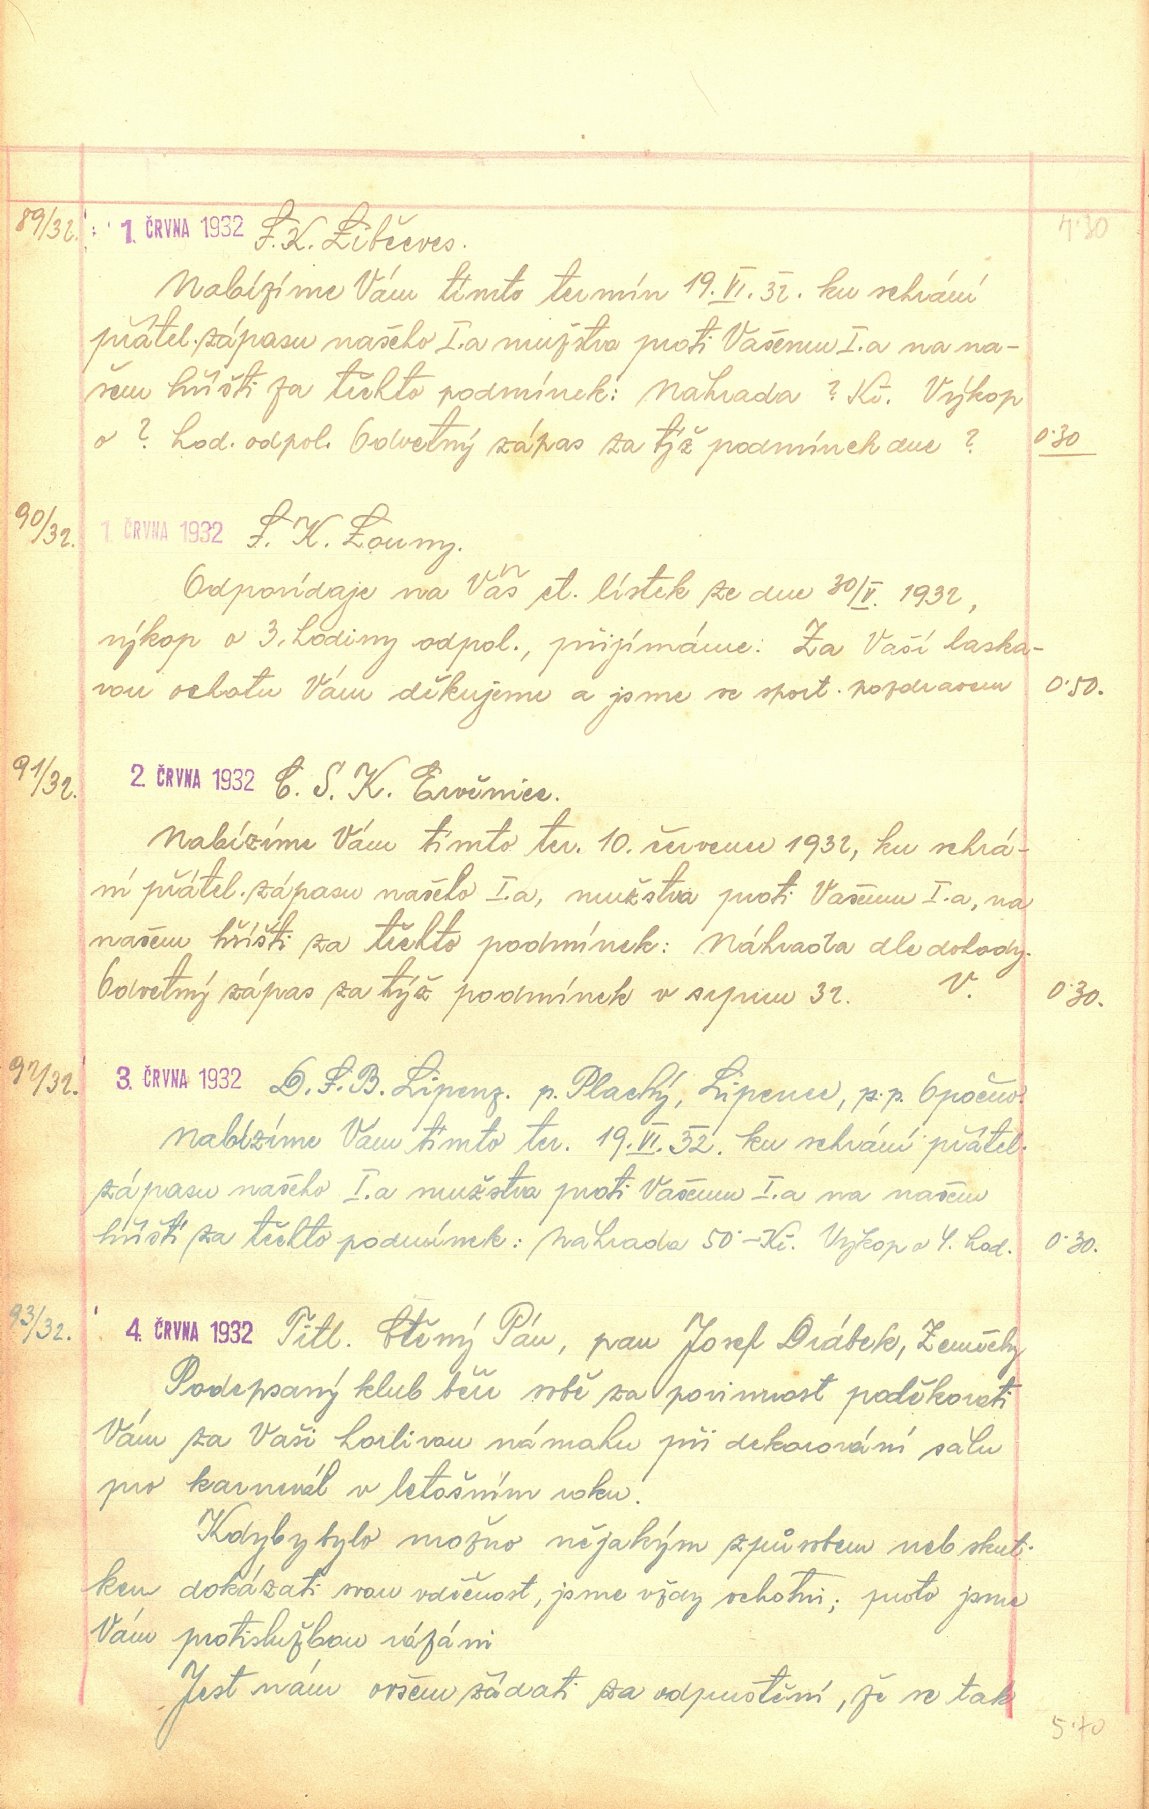 4·30
89/32. 1. ČRVNA 1932 F. K. Liběeves.
Nabízíme Vám tímto termín 19. VI. 32. ku sehrání
přátel. zápasu našeho I.a mužstva proti Vašemu I.a na na-
šem hřišti za těchto podmínek: Náhrada ? Kč. Výkop
o ? hod. odpol. Odvetný zápas za týž podmínek dne ? 0·30
90/32. 1. ČRVNA 1932 F. K. Louny.
Odpovídaje na Váš ct. lístek ze dne 30/V. 1932,
výkop o 3. hodiny odpol., přijímáme: Za Vaší laska-
vou ochotu Vám děkujeme a jsme se sport. pozdravem 0·50.
91/32. 2. ČRVNA 1932 Č. S. K. Ervěnice.
Nabízíme Vám tímto ter. 10. července 1932, ku sehrá-
ní přátel. zápasu našeho I.a, mužstva proti Vašemu I.a, na
našem hřišti za těchto podmínek: Náhrada dle dohody.
Odvetný zápas za týž podmínek v srpnu 32. V. 0·30.
92/32. 3. ČRVNA 1932 D. F. B. Lipenz. p. Plachý, Lipenec, p. p. Opočno.
Nabízíme Vám tímto ter. 19. VI. 32. ku sehrání přátel.
zápasu našeho I.a mužstva proti Vašemu I.a na našem
hřišti za těchto podmínek: Náhrada 50·– Kč. Výkop o 4. hod. 0·30.
93/32. 4. ČRVNA 1932 Titl. Ctěný Pán, pan Josef Drábek, Zeměchy
Podepsaný klub béře sobě za povinnost poděkovati
Vám za Vaši horlivou námahu při dekorování sálu
pro karnevál v letošním roku.
Kdyby bylo možno nějakým způsobem neb skut-
kem dokázati svou vděčnost, jsme vždy ochotni; proto jsme
Vám protislužbou vázáni
Jest nám ovšem žádati za odpuštění, že se tak
5·70